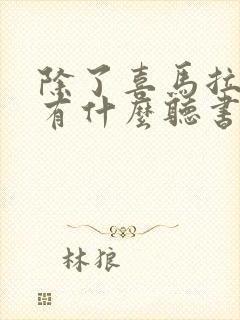 除了喜馬拉
有什麼聽書
林狼